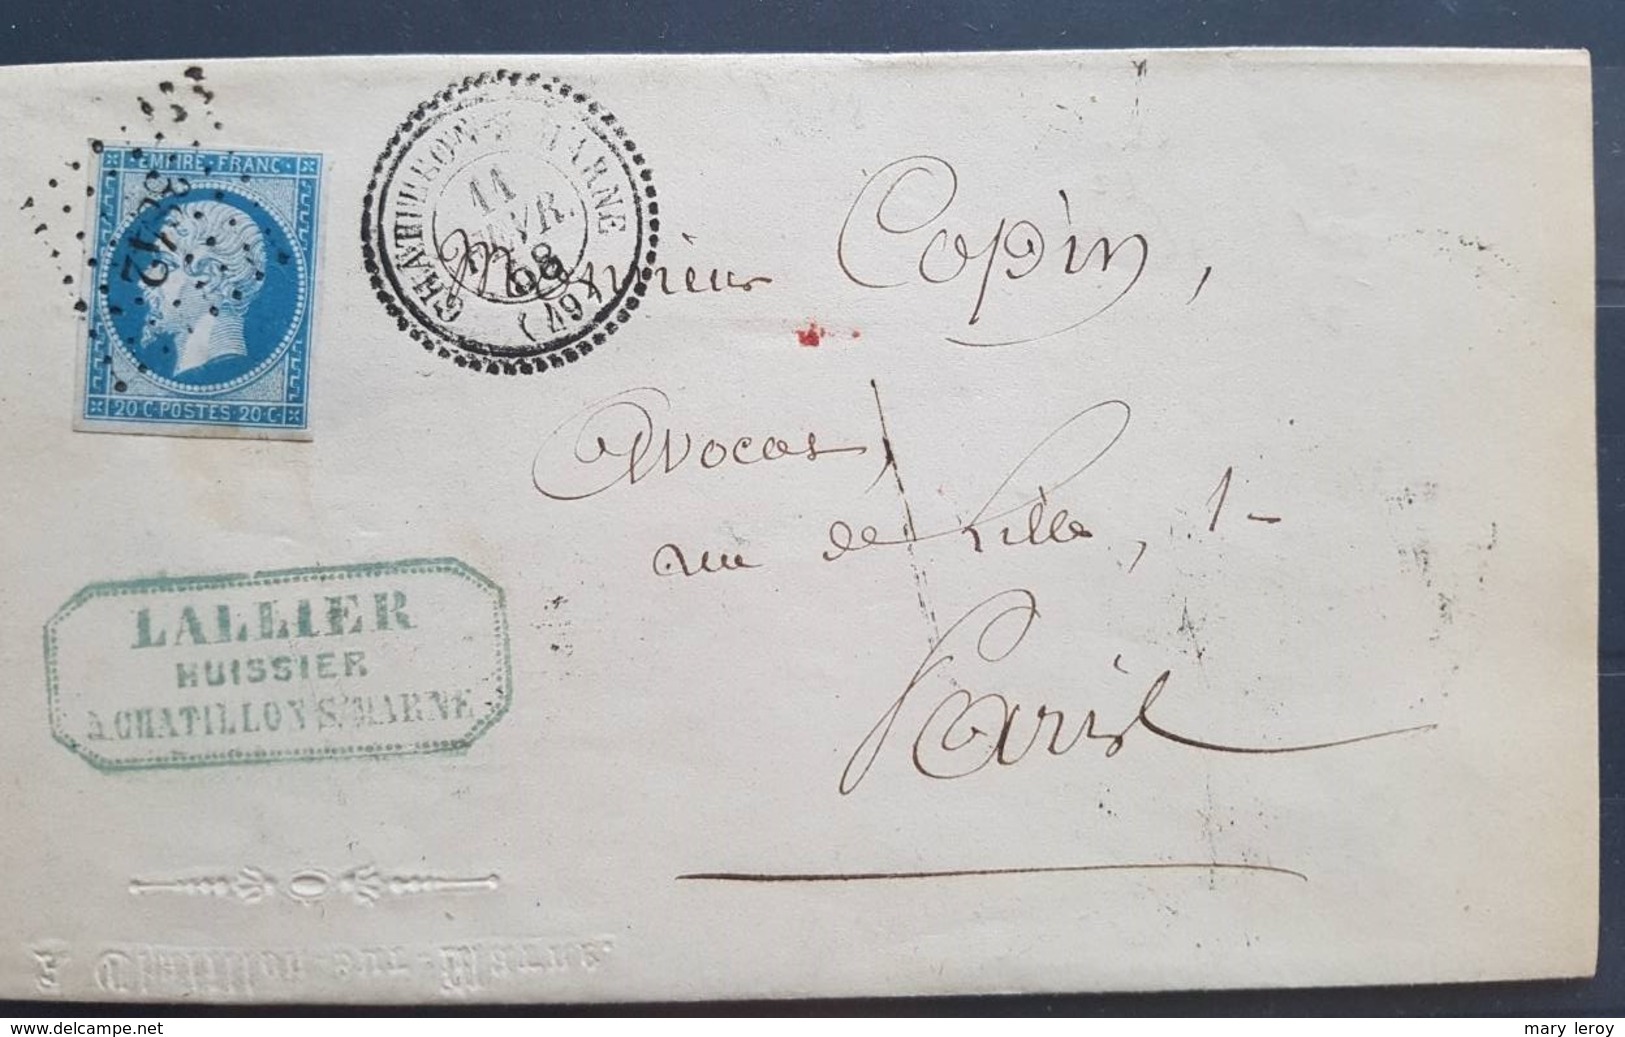 EMPIRE·FRANC·
3342
20 C·POSTES·20 C·
CHATILLON-S-MARNE
11
68
(49)
Monsieur Copin,
Avocat,
rue de Lille, 1-
Paris
LALLIER
HUISSIER
A CHATILLON S/ MARNE
A Chatillon-sur-Marne.
www.delcampe.net
mary leroy